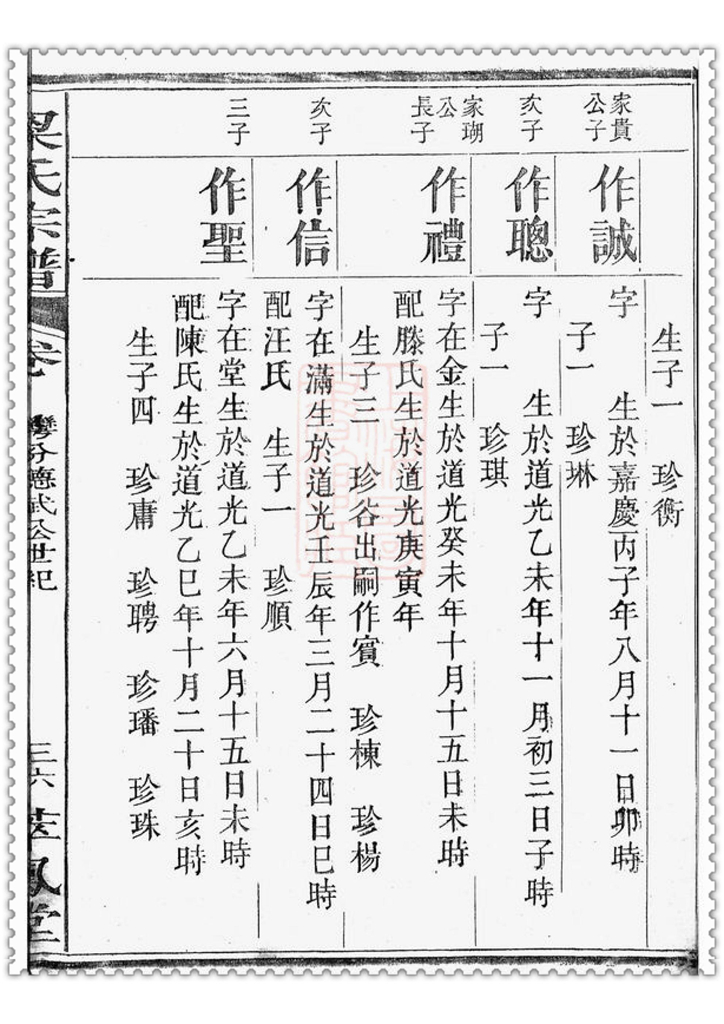 生子一 珍衡
家貴
公子
作誠
字 生於嘉慶丙子年八月十一日卯時
子一 珍琳
次子
作聰
字 生於道光乙未年十一月初三日子時
子一 珍琪
家瑚
公
長子
作禮
字在金生於道光癸未年十月十五日未時
配滕氏生於道光庚寅年
生子三 珍谷出嗣作賓 珍棟 珍楊
次子
作信
字在滿生於道光壬辰年三月二十四日巳時
配汪氏 生子一 珍順
三子
作聖
字在堂生於道光乙未年六月十五日未時
配陳氏生於道光乙巳年十月二十日亥時
生子四 珍庸 珍聘 珍璠 珍珠
氏宗譜 卷 世紀 三六 鳳堂